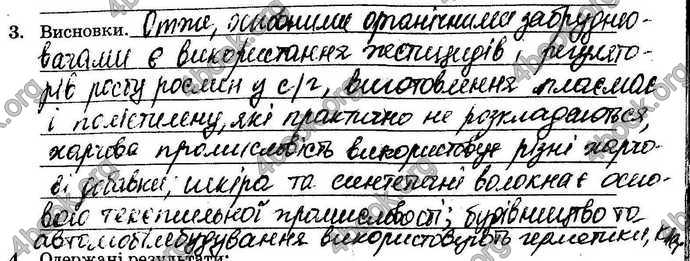 3. Висновки. Отже, головними органічними забрудню-
вачами є використання пестицидів, регулято-
рів росту рослин у с/г, виготовлення пластмас
і поліетилену, які практично не розкладаються,
харчова промисловість використовує різні харчо-
ві добавки, шкіра та синтетичні волокна є осно-
вою текстильної промисловості; будівництво та
автомобілебудування використовують герметики,
4. Одержані результати:
4book.org